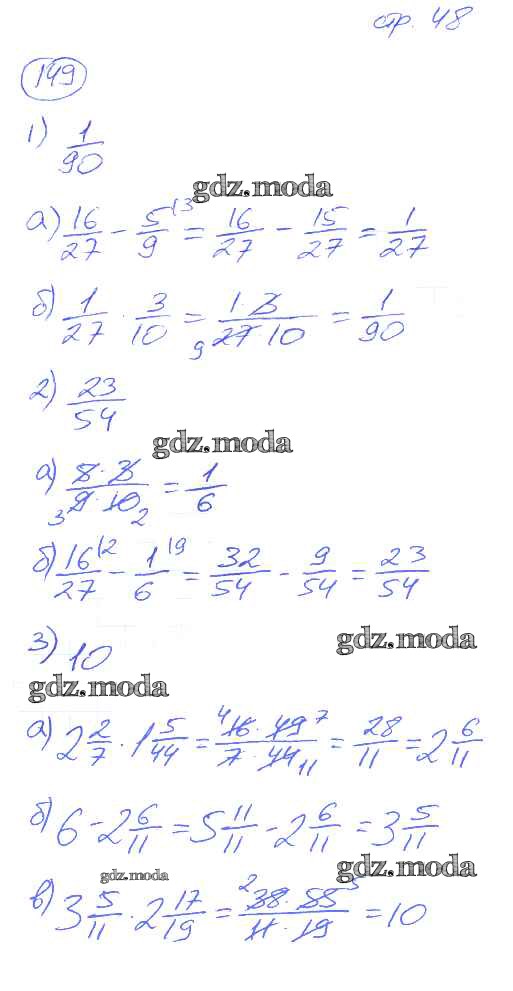 стр. 48
149
1) 1/90
gdz.moda
а) 16/27 - 5/9 (3 = 16/27 - 15/27 = 1/27
б) 1/27 · 3/10 = 1·3/9 27·10 = 1/90
2) 23/54
gdz.moda
а) 5·3/3 9·10 2 = 1/6
б) 16/27 (2 - 1/6 (9 = 32/54 - 9/54 = 23/54
3) 10
gdz.moda
gdz.moda
а) 2 2/7 · 1 5/44 = 4 16·49 7/7·44 11 = 28/11 = 2 6/11
б) 6 - 2 6/11 = 5 11/11 - 2 6/11 = 3 5/11
gdz.moda
gdz.moda
в) 3 5/11 · 2 17/19 = 2 38·55 5/11·19 = 10